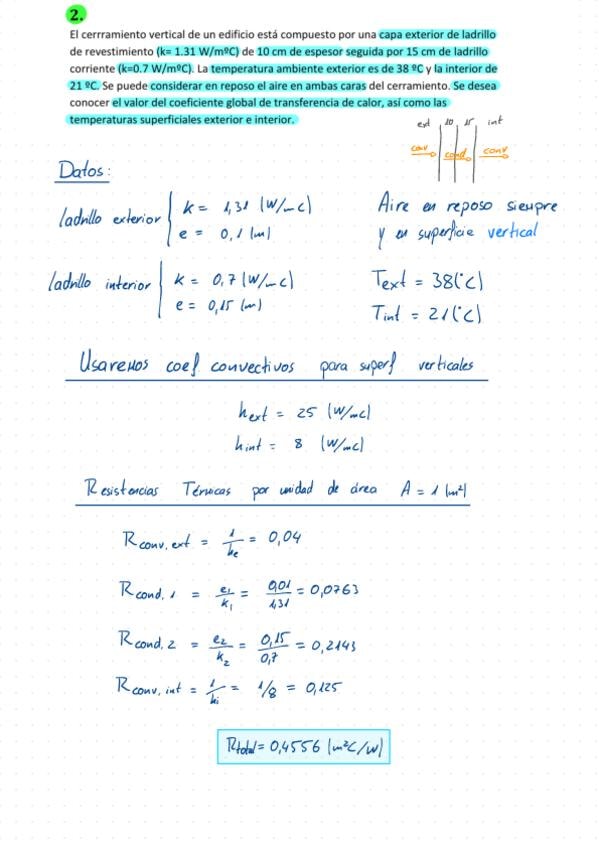 2.
El cerrramiento vertical de un edificio está compuesto por una capa exterior de ladrillo
de revestimiento (k= 1.31 W/mºC) de 10 cm de espesor seguida por 15 cm de ladrillo
corriente (k=0.7 W/mºC). La temperatura ambiente exterior es de 38 ºC y la interior de
21 ºC. Se puede considerar en reposo el aire en ambas caras del cerramiento. Se desea
conocer el valor del coeficiente global de transferencia de calor, así como las
temperaturas superficiales exterior e interior.
ext 10 15 int
conv cond conv
Datos:
ladrillo exterior
k = 1,31 (W/mC)
e = 0,1 (m)
Aire en reposo siempre
y en superficie vertical
ladrillo interior
k = 0,7 (W/mC)
e = 0,15 (m)
Text = 38(°C)
Tint = 21(°C)
Usaremos coef convectivos para superf verticales
hext = 25 (W/mC)
hint = 8 (W/mC)
Resistencias Térmicas por unidad de área A = 1 (m²)
Rconv, ext = 1/he = 0,04
Rcond, 1 = e1/k1 = 0,01/1,31 = 0,0763
Rcond, 2 = e2/k2 = 0,15/0,7 = 0,2143
Rconv, int = 1/hi = 1/8 = 0,125
Rtotal = 0,4556 (m²C/W)